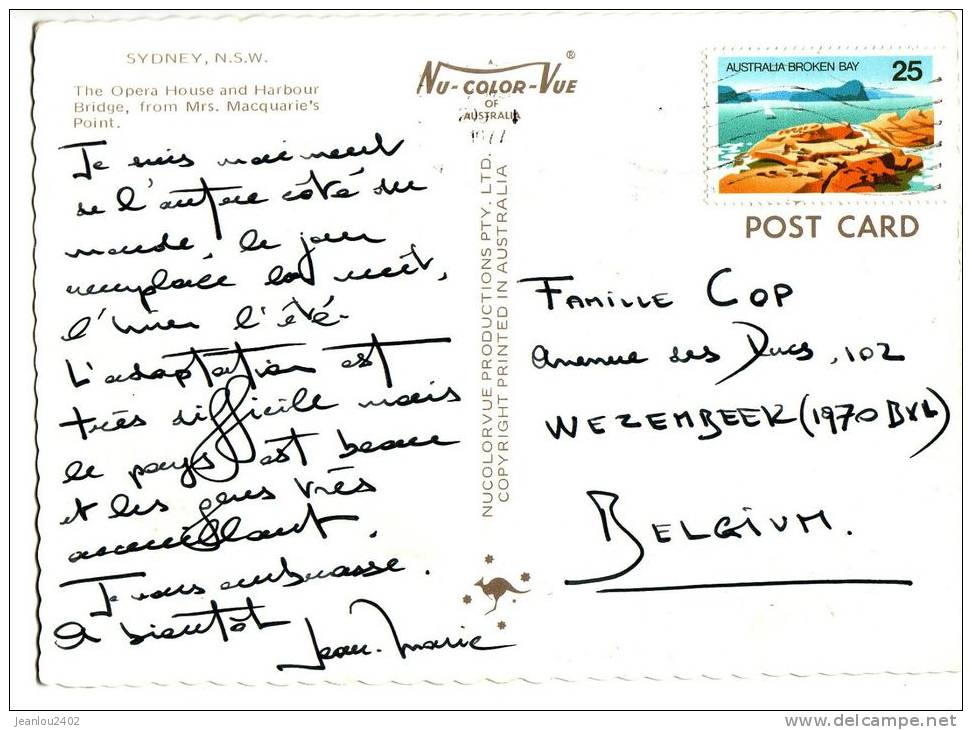 SYDNEY, N.S.W.
The Opera House and Harbour
Bridge, from Mrs. Macquarie's
Point.
Je suis vraiment
de l'autre côté du
monde, le jour
remplace la nuit,
l'hiver l'été.
L'adaptation est
très difficile mais
le pays est beau
et les gens très
accueillant.
Je vous embrasse.
A bientôt
Jean-Marie
NU-COLOR-VUE®
OF
AUSTRALIA
NUCOLORVUE PRODUCTIONS PTY. LTD.
COPYRIGHT PRINTED IN AUSTRALIA
AUSTRALIA BROKEN BAY 25
POST CARD
FAMILLE COP
Avenue des Ducs, 102
WEZEMBEEK (1970 BXL)
BELGIUM.
jeanlou2402
www.delcampe.net